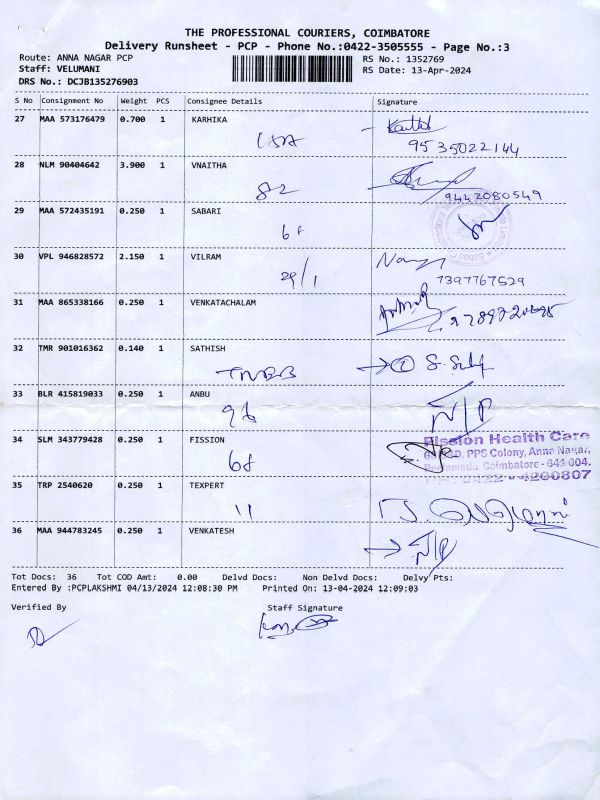 THE PROFESSIONAL COURIERS, COIMBATORE
Delivery Runsheet - PCP - Phone No.:0422-3505555 - Page No.:3
Route: ANNA NAGAR PCP RS No.: 1352769
Staff: VELUMANI RS Date: 13-Apr-2024
DRS No.: DCJB135276903
S No Consignment No Weight PCS Consignee Details Signature
27 MAA 573176479 0.700 1 KARHIKA
9535022144
28 NLM 90404642 3.900 1 VNAITHA
82 9442080549
29 MAA 572435191 0.250 1 SABARI
68
30 VPL 946828572 2.150 1 VILRAM
29/1 7397767529
31 MAA 865338166 0.250 1 VENKATACHALAM
32 TMR 901016362 0.140 1 SATHISH
33 BLR 415819033 0.250 1 ANBU
96 N/P
34 SLM 343779428 0.250 1 FISSION Fission Health Care
68 PPS Colony, Anna Nagar,
Coimbatore - 641 004.
0422 - 4200807
35 TRP 2540620 0.250 1 TEXPERT
11
36 MAA 944783245 0.250 1 VENKATESH
N/P
Tot Docs: 36 Tot COD Amt: 0.00 Delvd Docs: Non Delvd Docs: Delvy Pts:
Entered By :PCPLAKSHMI 04/13/2024 12:08:30 PM Printed On: 13-04-2024 12:09:03
Verified By Staff Signature